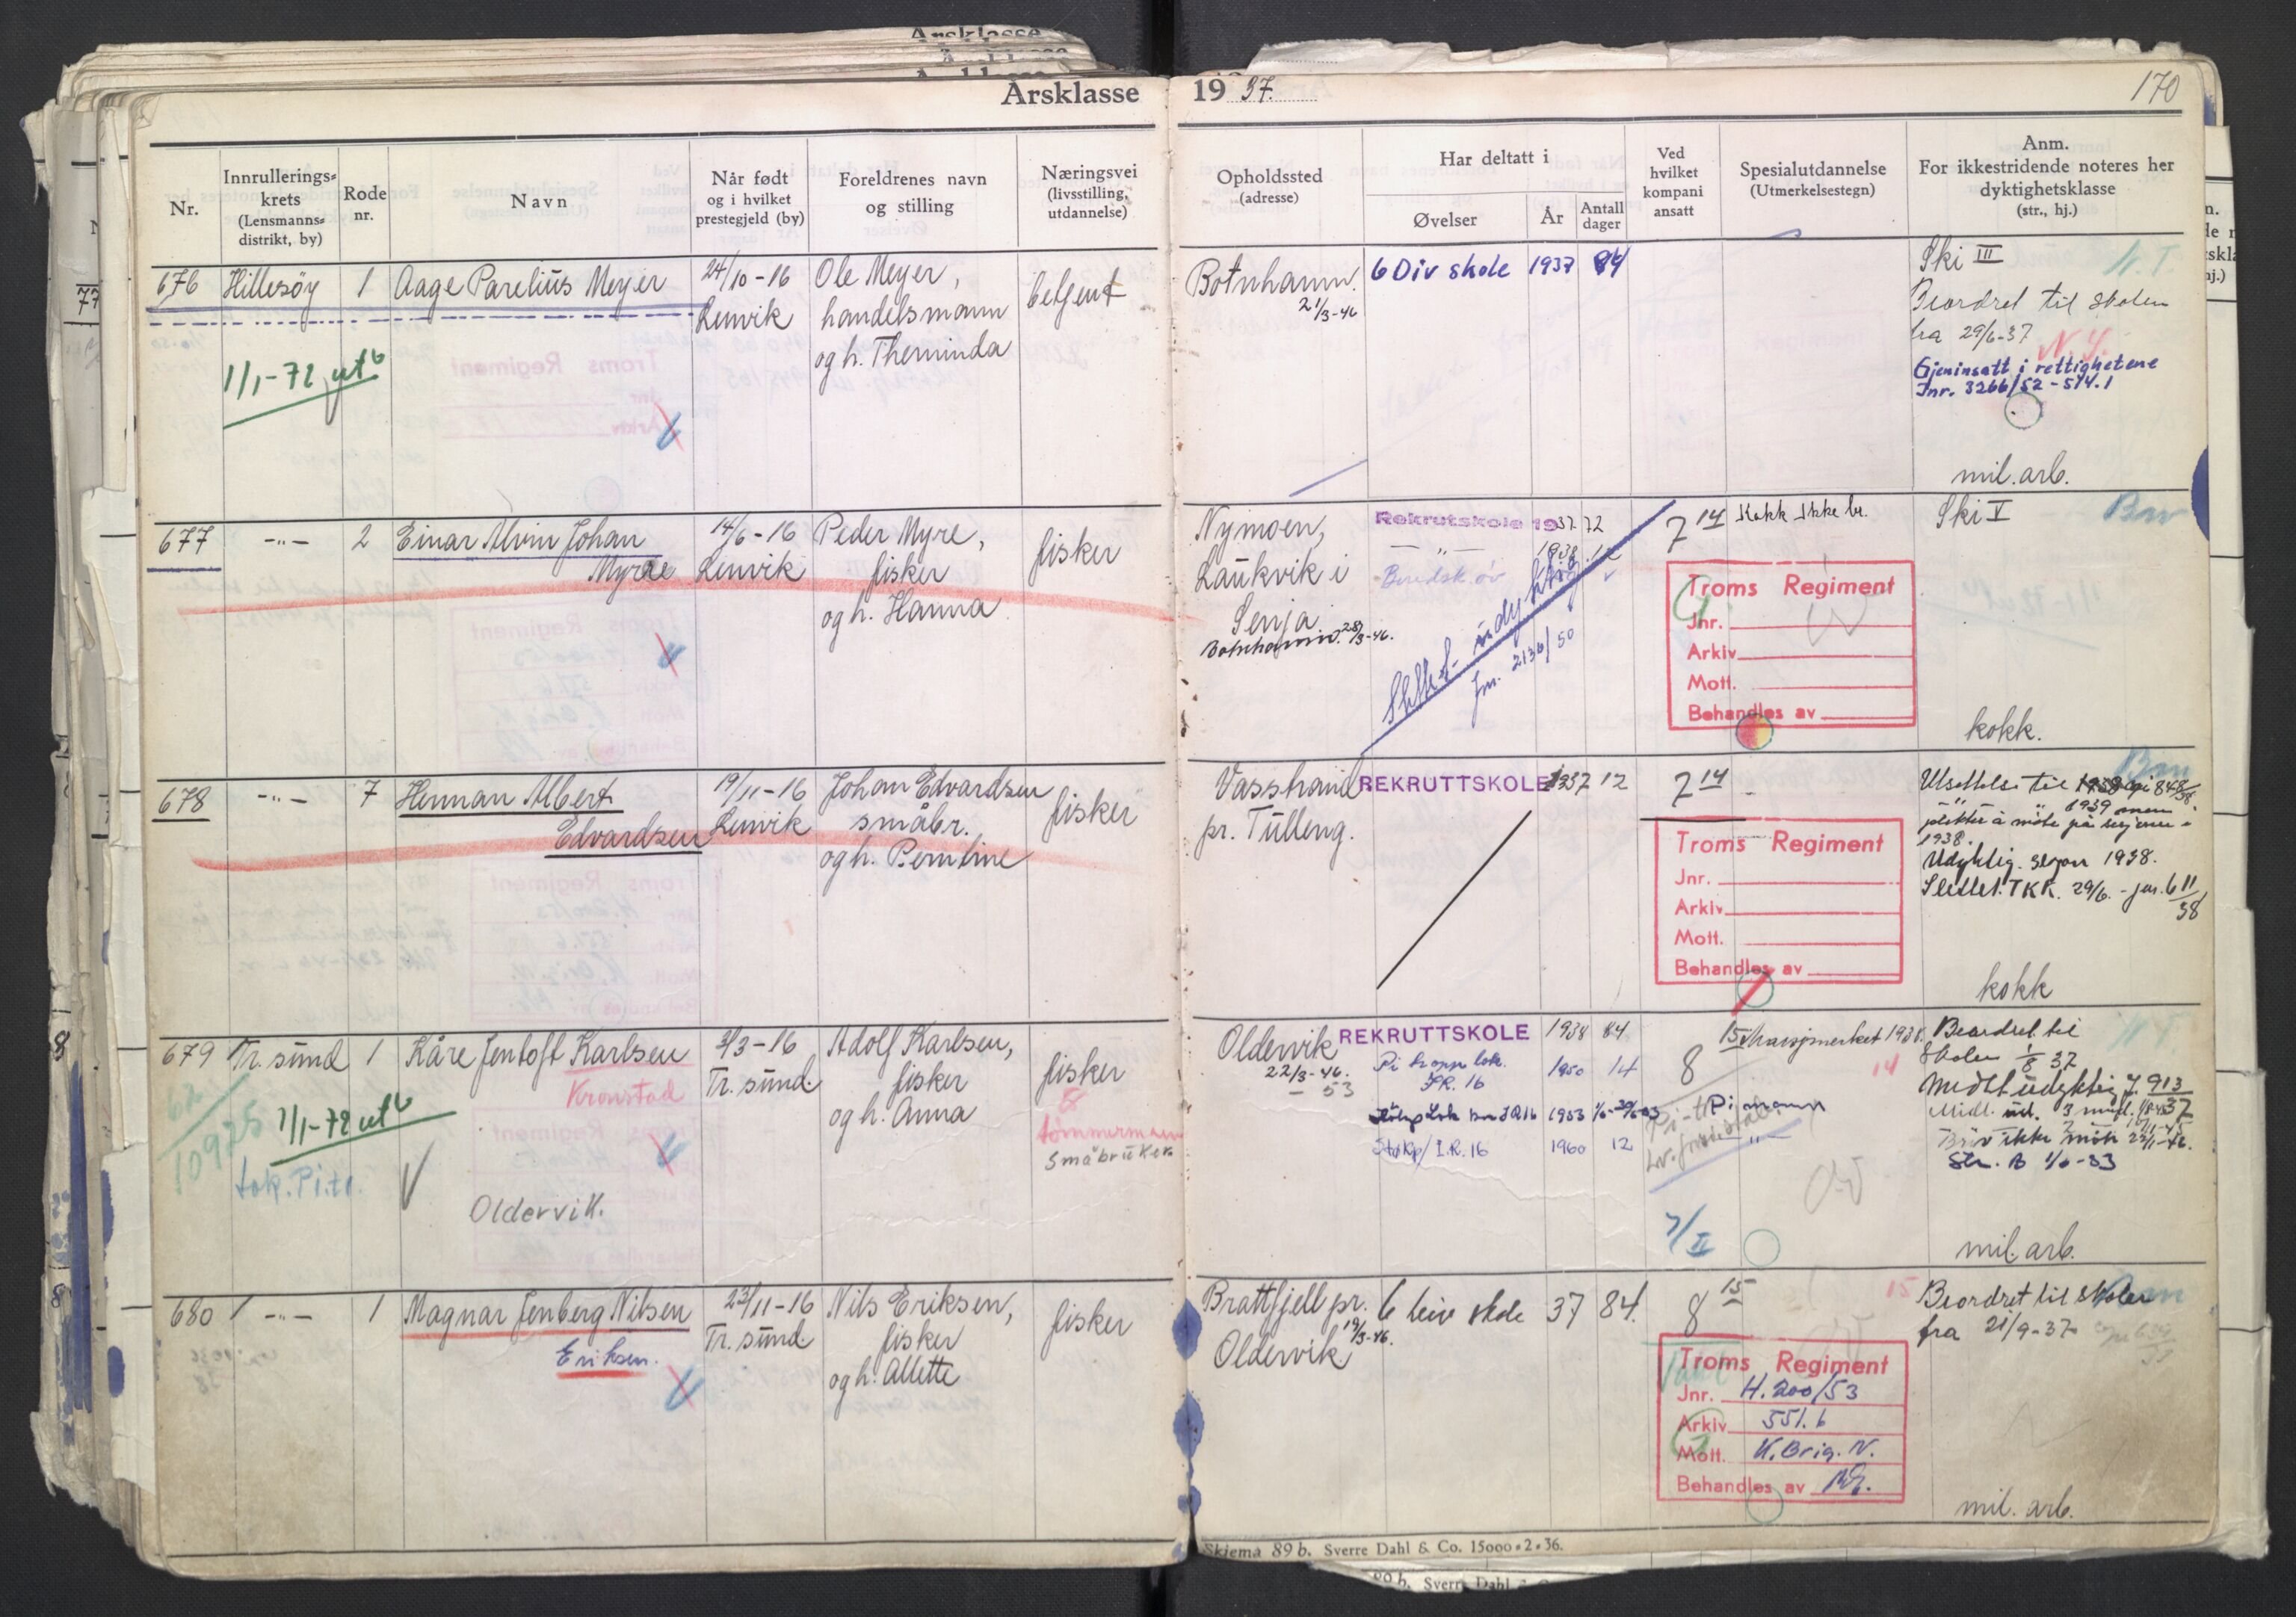 Årsklasse 1937. 170
Nr.
Innrullerings=
krets
(Lensmanns=
distrikt, by)
Rode
nr.
Navn
Når født
og i hvilket
prestegjeld (by)
Foreldrenes navn
og stilling
Næringsvei
(livsstilling,
utdannelse)
Opholdssted
(adresse)
Har deltatt i
Øvelser
År
Antall
dager
Ved
hvilket
kompani
ansatt
Spesialutdannelse
(Utmerkelsestegn)
Anm.
For ikkestridende noteres her
dyktighetsklasse
(str., hj.)
676 Hillesöy 1 Aage Parelius Meyer
24/10-16
Lenvik
Ole Meyer,
handelsmann
og h. Theminda
betjent
1/1-72 utb
Botnhamn.
21/3-46
6 Div skole 1937 84
Ski III
Beordret til skolen
fra 29/6-37
N.Y.
Gjeninsatt i rettighetene
Jnr. 3266/52-514.1
mil. arb.
677 -"- 2 Einar Alvin Johan
Myrae
14/6-16
Lenvik
Peder Myre,
fisker
og h. Hanna
fisker
Nymoen,
Laukvik i
Senja
Botnhamn. 28/3-46.
Rekrutskole 1937 72
-"- 1938 12
Slettet - udyktig
Jnr. 2136/50
7 14
Kokk ikke br.
Troms Regiment
Jnr.
Arkiv
Mott.
Behandles av
Ski V
kokk.
678 -"- 7 Herman Albert
Edvardsen
19/11-16
Lenvik
Johan Edvardsen
småbr.
og h. Perntine
fisker
Vasshaug
pr. Tulleng.
REKRUTTSKOLE 1937 12
7 14
Troms Regiment
Jnr.
Arkiv
Mott.
Behandles av
Utsettelse til
1939 men
pliktet å möte på sesjonen i
1938.
Udyktig. sesjon 1938.
Slettet. TKR. 29/6. - jnr. 611/38
kokk
679 Tr. sund 1 Kåre Jentoft Karlsen
Kronstad
2/3-16
Tr. sund.
Adolf Karlsen,
fisker
og h. Anna
fisker
8
tømmermann
Småbruker
62
10925
1/1-72 utb
Lok. Pi.tr.
Oldervik.
Oldervik
22/3-46.
- 53
REKRUTTSKOLE 1938 84
Pi tropp lok.
IR. 16 1950 14
1953
Stakp/I.R. 16 1960 12
8 15
skarpsj.merket 1938.
14
Pi-tropp
7/II
Beordret til
Skolen 1/8 37
Midlt udyktig J. 913/37
Str. B 1/6-53
mil. arb.
680 -"- 1 Magnar Jenberg Nilsen
Eriksen.
23/11-16
Tr. sund.
Nils Eriksen,
fisker
og h. Allette
fisker
Brattfjell pr.
19/3-46.
Oldervik
6 Div skole 37 84.
8 15
15
Troms Regiment
Jnr. H. 200/53
Arkiv 551.6
Mott. K. Brig. N.
Behandles av
Beordret til skolen
fra 21/9-37
mil. arb.
Skjema 89 b. Sverre Dahl & Co. 15000*2*36.